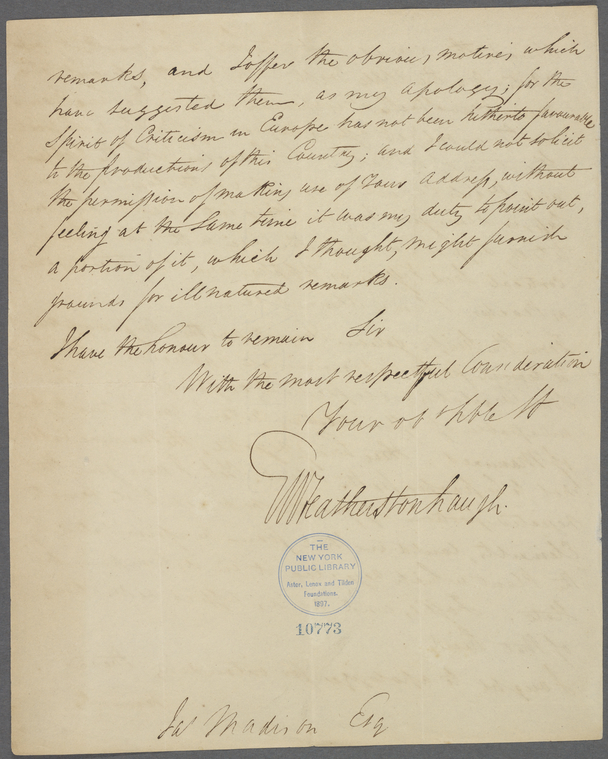 remarks, and I offer the obvious motives which
have suggested them, as my apology; for the
Spirit of Criticism in Europe has not been hitherto favourable
to the productions of this Country; and I could not solicit
the permission of making use of Your Address, without
feeling at the same time it was my duty to point out,
a portion of it, which I thought, might furnish
grounds for ill natured remarks.
I have the honour to remain Sir
With the most respectful Consideration
Your ob hble St
Featherstonhaugh.
THE
NEW YORK
PUBLIC LIBRARY
Astor, Lenox and Tilden
Foundations.
1897.
10773
Jas Madison Esq